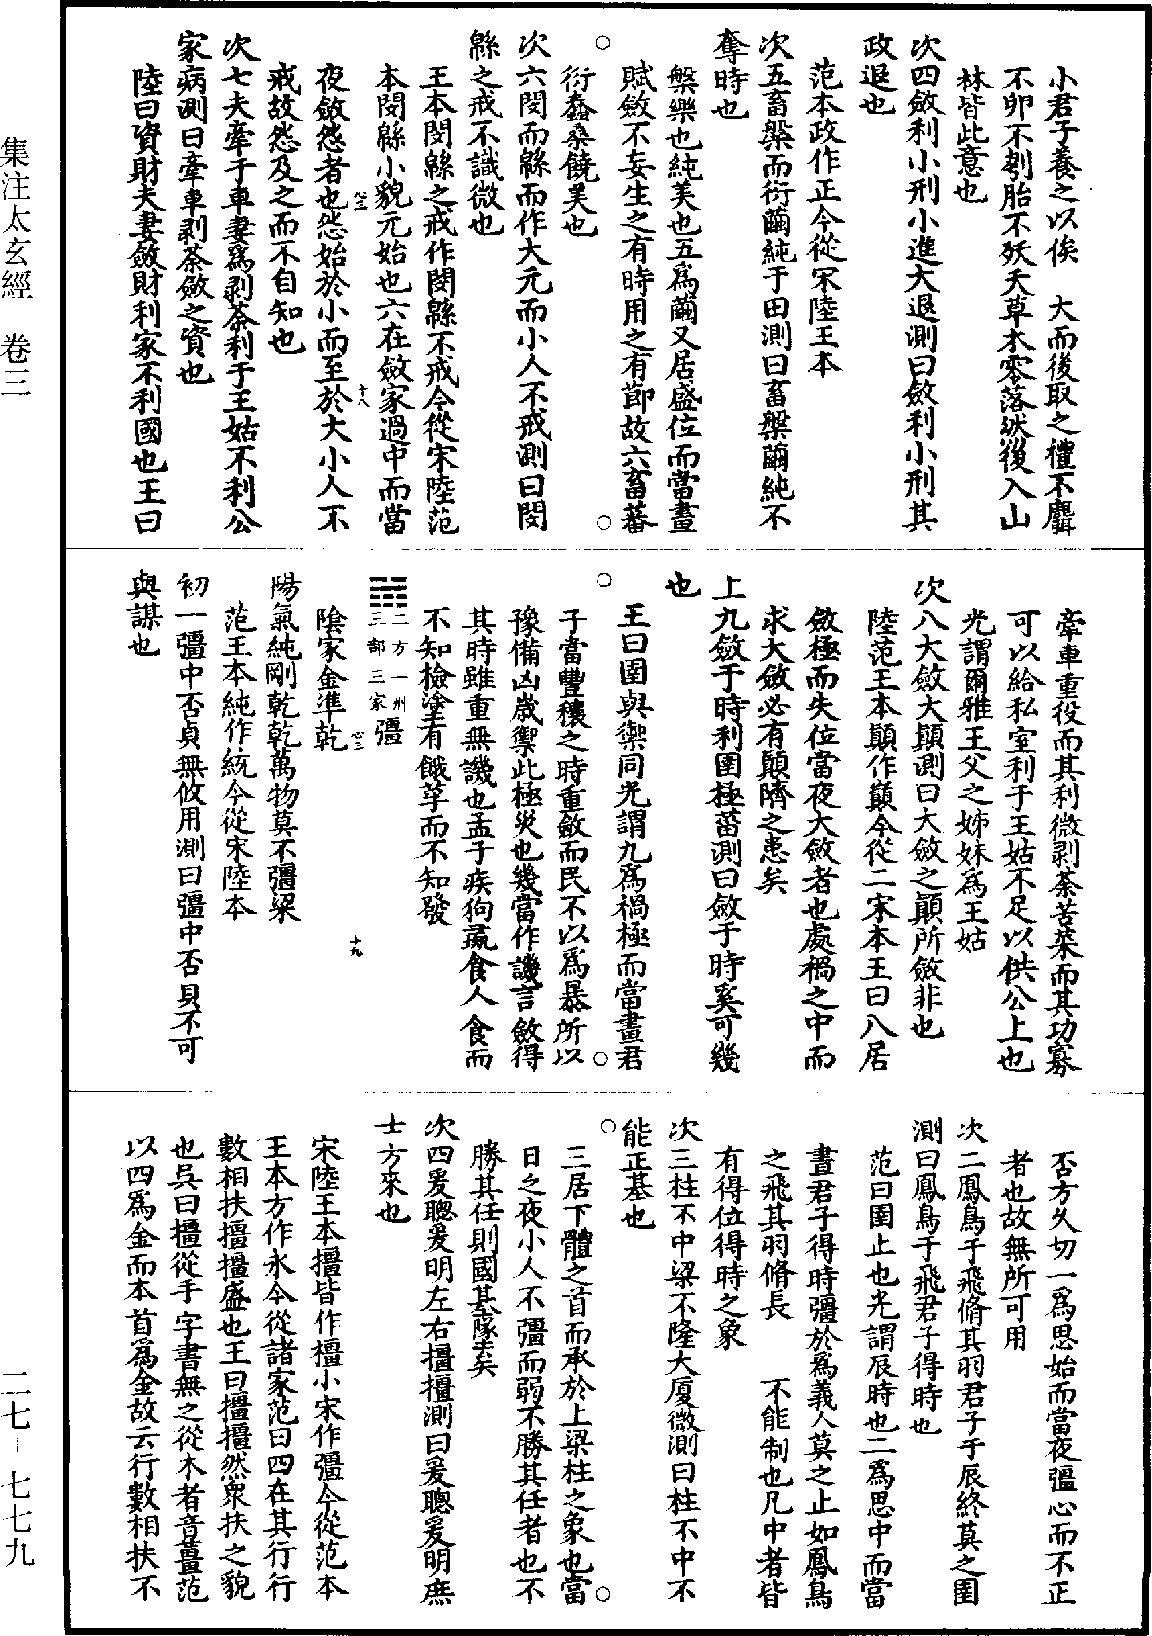 小君子養之以俟　大而後取之禮不麛
不卵不刳胎不殀夭草木零落然後入山
林皆此意也
次四斂利小刑小進大退測曰斂利小刑其
政退也
范本政作正今從宋陸王本
次五畜槃而衍繭純于田測曰畜槃繭純不
奪時也
槃樂也純美也五爲繭又居盛位而當晝
賦斂不妄生之有時用之有節故六畜蕃
衍蠶桑饒美也
○
○
次六閔而緜而作大元而小人不戒測曰閔
緜之戒不識微也
王本閔緜之戒作閔緜不戒今從宋陸范
本閔緜小貌元始也六在斂家過中而當
夜斂怨者也怨始於小而至於大小人不
戒故怨及之而不自知也
十八
次七夫牽于車妻爲剥荼利于王姑不利公
家病測曰牽車剥荼斂之資也
陸曰資財夫妻斂財利家不利國也王曰
牽車重役而其利微剥荼苦菜而其功寡
可以給私室利于王姑不足以供公上也
光謂爾雅王父之姊妹爲王姑
次八大斂大顛測曰大斂之顛所斂非也
陸范王本顛作巔今從二宋本王曰八居
斂極而失位當夜大斂者也處禍之中而
求大斂必有顛隮之患矣
上九斂于時利圉極菑測曰斂于時奚可幾
也
王曰圉與禦同光謂九爲禍極而當晝君
子當豐穰之時重斂而民不以爲暴所以
豫備凶歲禦此極災也幾當作譏言斂得
其時雖重無譏也孟子疾狗彘食人食而
不知檢塗有餓莩而不知發
○
○
二方一州
三部三家
彊
陰家金準乾
陽氣純剛乾乾萬物莫不彊梁
范王本純作統今從宋陸本
十九
初一彊中否貞無攸用測曰彊中否貞不可
與謀也
否方久切一爲思始而當夜彊心而不正
者也故無所可用
次二鳳鳥于飛脩其羽君子于辰終莫之圉
測曰鳳鳥于飛君子得時也
范曰圉止也光謂辰時也二爲思中而當
晝君子得時彊於爲義人莫之止如鳳鳥
之飛其羽脩長　　不能制也凡中者皆
有得位得時之象
次三柱不中梁不隆大廈微測曰柱不中不
能正基也
三居下體之首而承於上梁柱之象也當
日之夜小人不彊而弱不勝其任者也不
勝其任則國基隊矣
○
○
次四爰聰爰明左右橿橿測曰爰聰爰明庶
士方來也
宋陸王本橿皆作㯵小宋作彊今從范本
王本方作永今從諸家范曰四在其行行
數相扶橿橿盛也王曰橿橿然衆扶之貌
也吳曰橿從手字書無之從木者音薑范
以四爲金而本首爲金故云行數相扶不
集注太玄經　卷三
二七-七七九